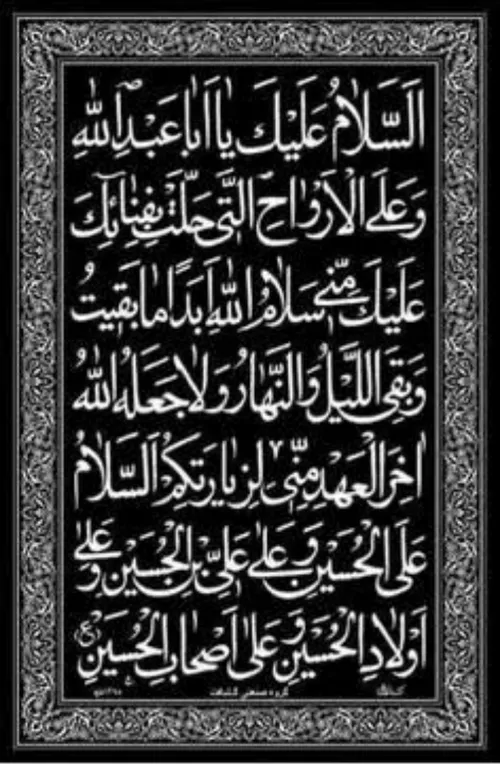 اَلسَّلامُ عَلَيْكَ يا اَباعَبْدِاللهِ
وَعَلَى الْاَرْواحِ الَّتى حَلَّتْ بِفِنائِكَ
عَلَيْكَ مِنّى سَلامُ اللهِ اَبَدًا ما بَقيتُ
وَبَقِىَ اللَّيْلُ وَالنَّهارُ وَلاجَعَلَهُ اللهُ
اخِرَ الْعَهْدِ مِنّى لِزِيارَتِكُمْ اَلسَّلامُ
عَلَى الْحُسَيْنِ وَعَلى عَلِىِّ بْنِ الْحُسَيْنِ وَعَلى
اَوْلادِ الْحُسَيْنِ وَعَلى اَصْحابِ الْحُسَيْنِ (ع)
گروه صنعتی